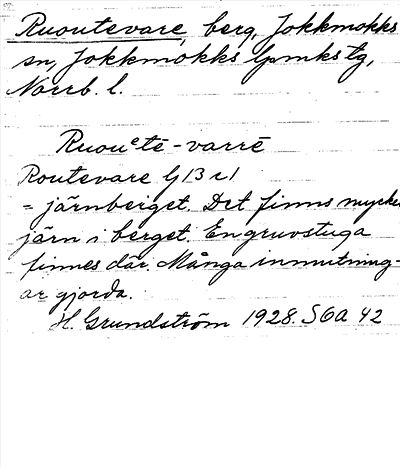 Ruoutevare, berg, Jokkmokks
sn, Jokkmokks lpmks tg,
Norrb. l.
Ruouᵉtē-varrē
Routevare G 13 c1
= järnberget. Det finns mycke
järn i berget. En gruvstuga
finnes där. Många inmutning-
ar gjorda.
H. Grundström 1928. SGA 42